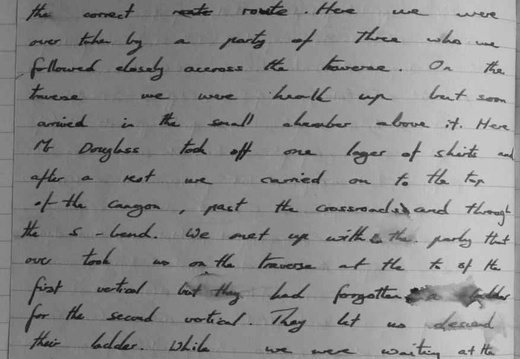 the correct route route. Here we were
over taken by a party of three who we
followed closely accross the traverse. On the
traverse we were held up but soon
arrived in the small chamber above it. Here
Mr Douglass took off one layer of shirts and
after a rest we carried on to the top
of the Canyon, past the crossroads and through
the S-bend. We met up with the party that
over took us on the traverse at the to of the
first vertical but they had forgotten a ladder
for the second vertical. They let us descend
their ladder. While we were waiting at the